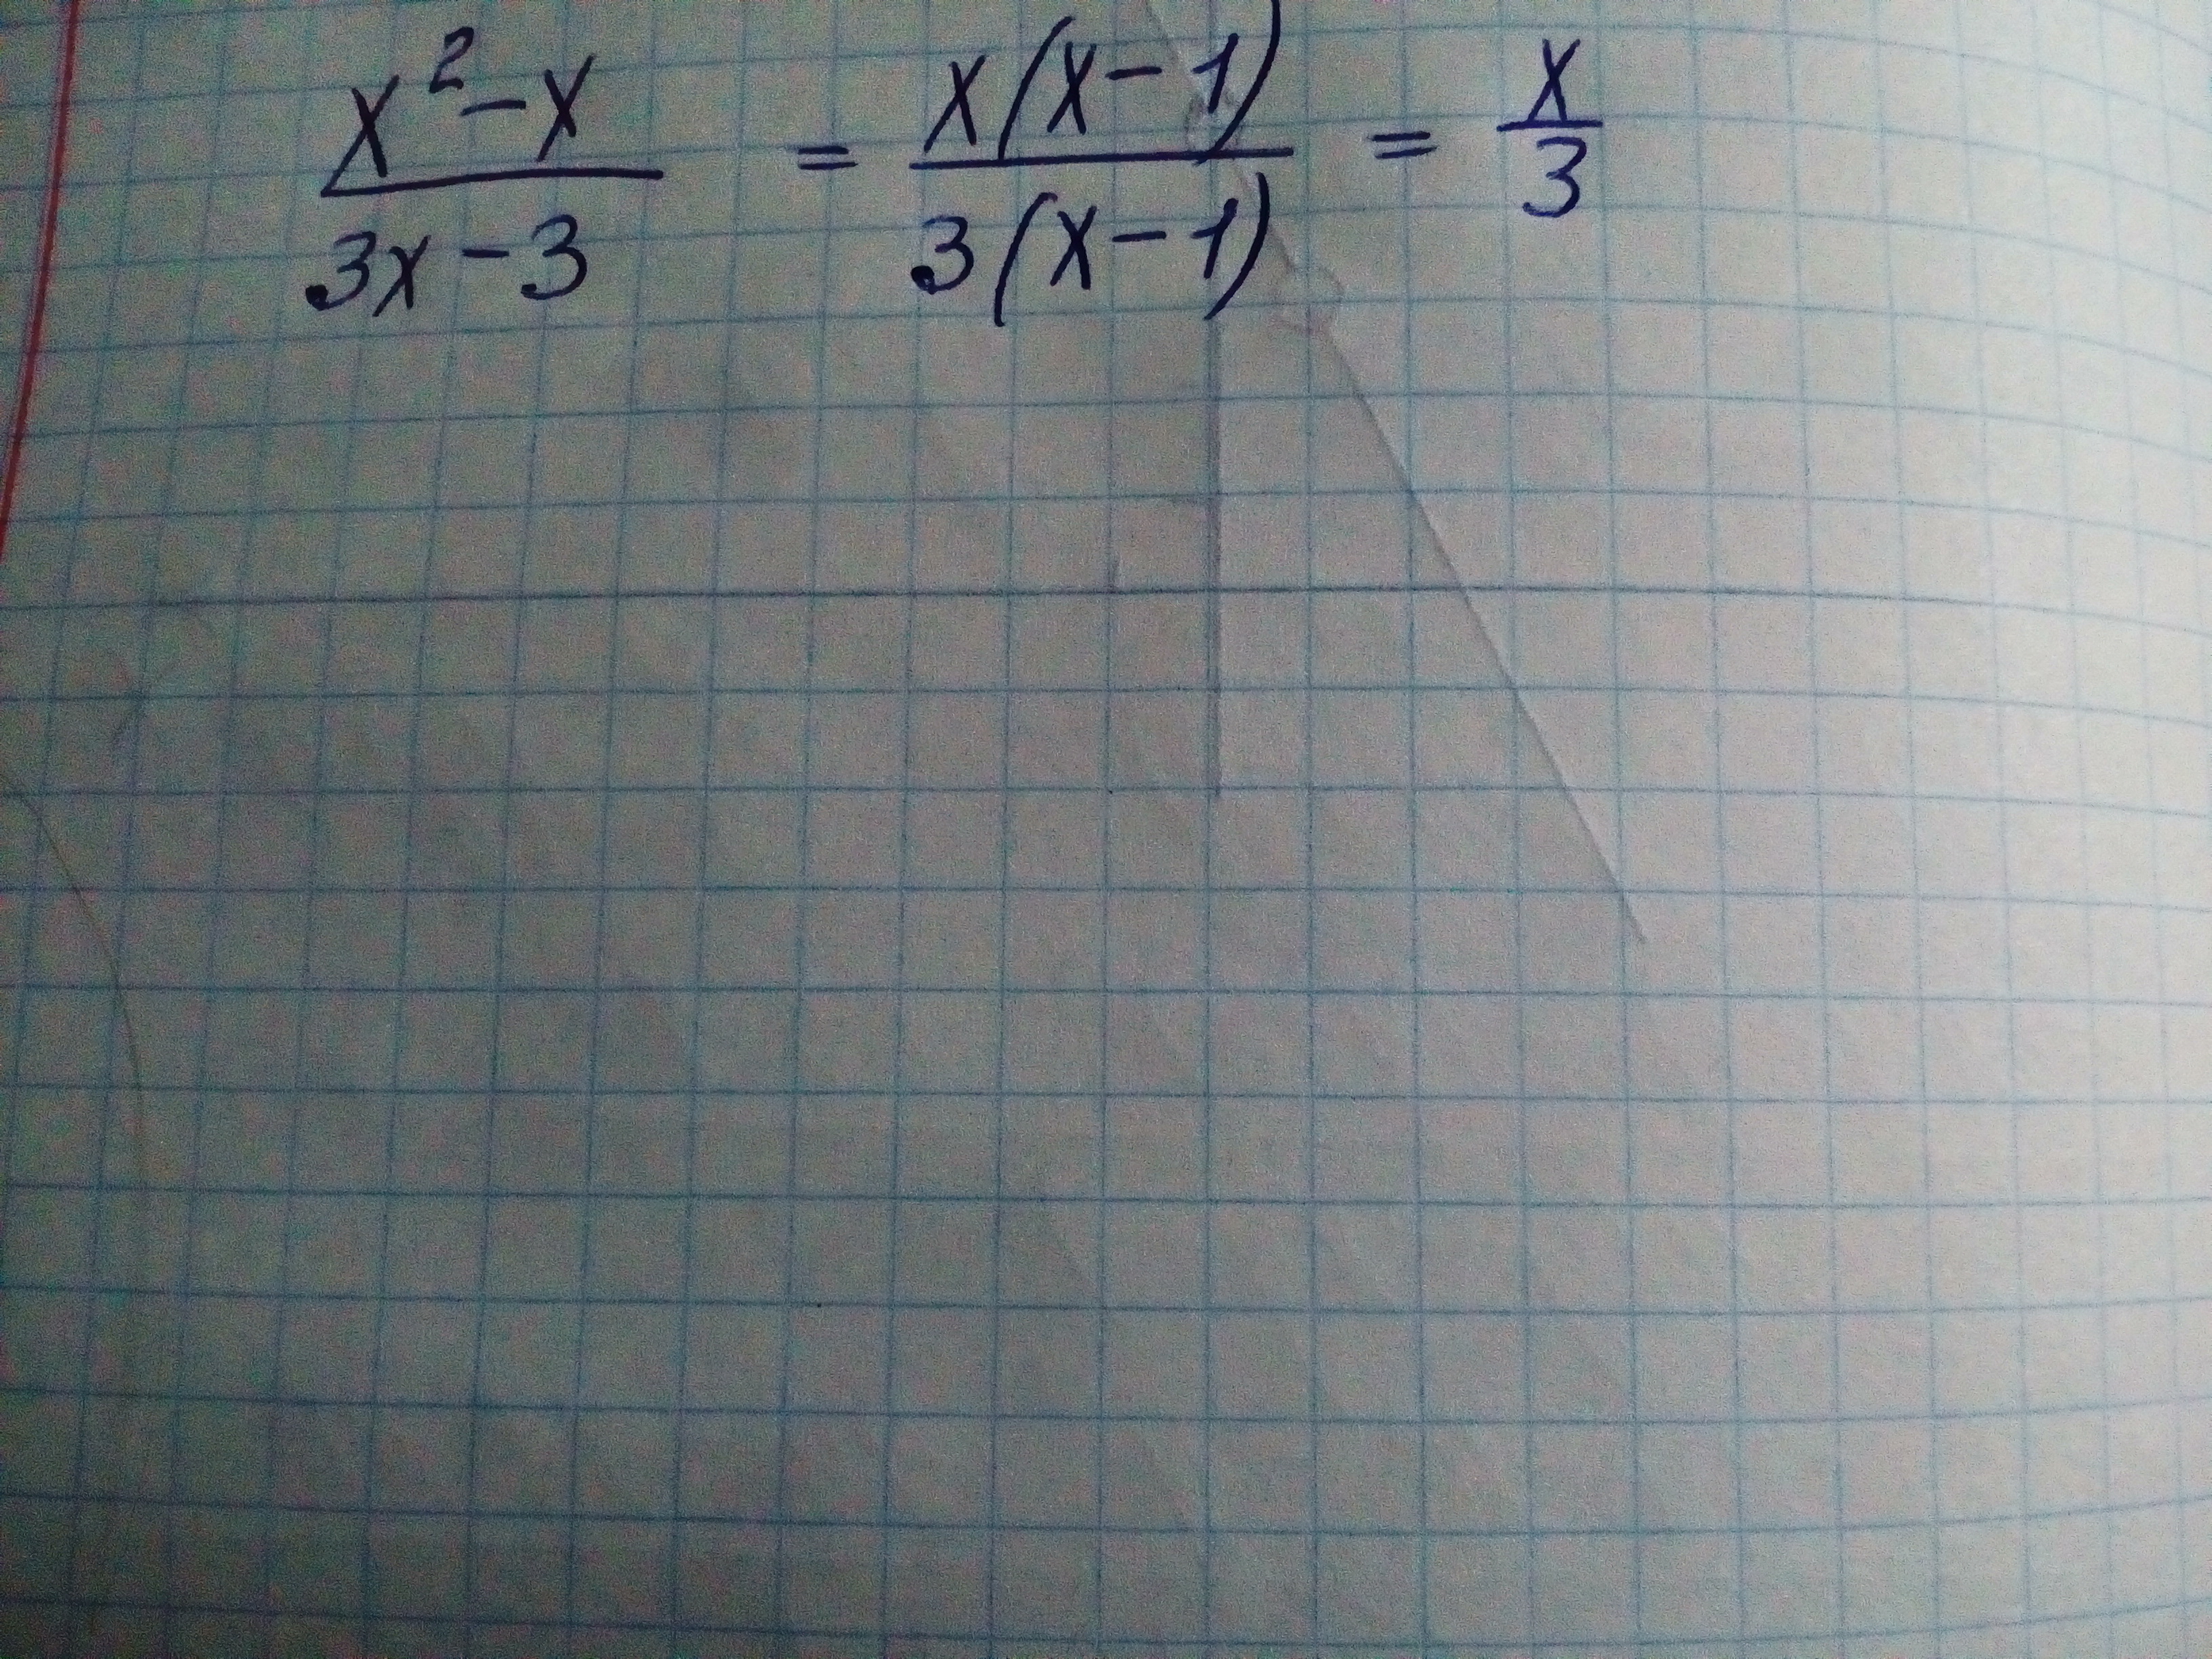 x²-x / 3x-3 = x(x-1) / 3(x-1) = x / 3